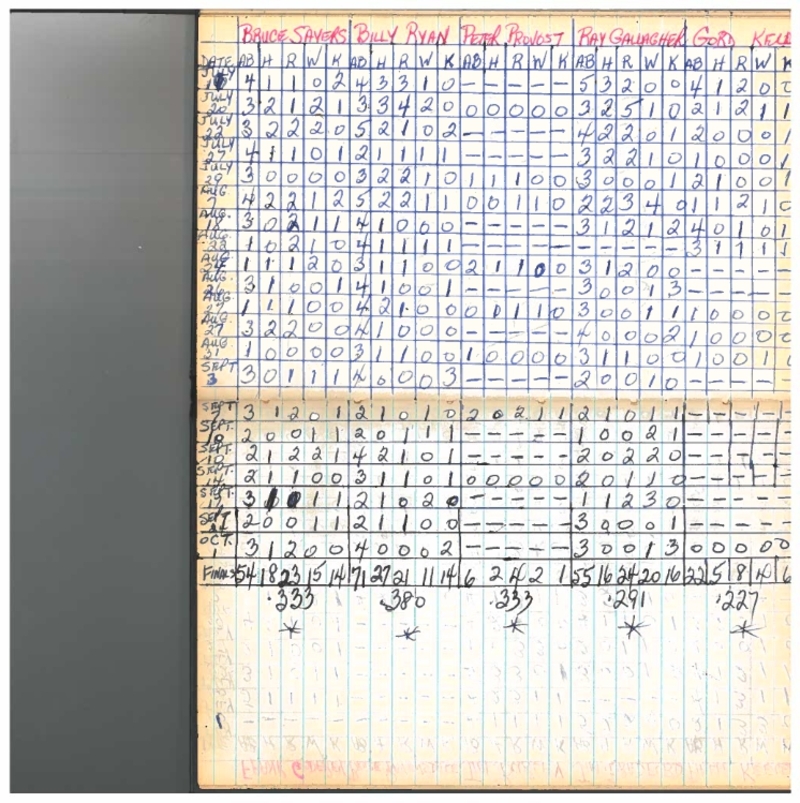 BRUCE SAYERS BILLY RYAN PETER PROVOST RAY GALLAGHER GORD
DATE AB H R W K AB H R W K AB H R W K AB H R W K AB H R W K
JULY 4 1 1 0 2 4 3 3 1 0 – – – – – 5 3 2 0 0 4 1 2 0 0
JULY 20 3 2 1 2 1 3 3 4 2 0 0 0 0 0 0 3 2 5 1 0 2 1 2 1 1
JULY 22 3 2 2 2 0 5 2 1 0 2 – – – – – 4 2 2 0 1 2 0 0 0 1
JULY 27 4 1 1 0 1 2 1 1 1 1 – – – – – 3 2 2 1 0 1 0 0 0 1
JULY 29 3 0 0 0 0 3 2 2 1 0 1 1 1 0 0 3 0 0 0 1 2 1 0 0 1
AUG 4 2 2 1 2 5 2 2 1 1 0 0 1 1 0 2 2 3 4 0 1 1 2 1 0
AUG. 18 3 0 2 1 1 4 1 0 0 0 – – – – – 3 1 2 1 2 4 0 1 0 1
AUG. 22 1 0 2 1 0 4 1 1 1 1 – – – – – – – – – – 3 1 1 1 1
AUG. 1 1 1 2 0 3 1 1 0 0 2 1 1 0 0 3 1 2 0 0 – – – – –
AUG. 3 1 0 0 1 4 1 0 0 1 – – – – – 3 0 0 1 3 – – – – –
AUG 1 1 1 0 0 4 2 1 0 0 0 0 1 1 0 3 0 0 1 1 1 0 0 0 0
AUG. 27 3 2 2 0 0 4 1 0 0 0 – – – – – 4 0 0 0 2 1 0 0 0 0
AUG. 31 1 0 0 0 0 3 1 1 0 0 1 0 0 0 0 3 1 1 0 0 1 0 0 1 0
SEPT 3 3 0 1 1 1 4 0 0 0 3 – – – – – 2 0 0 1 0 – – – – –
SEPT 3 1 2 0 1 2 1 0 1 0 2 0 2 1 1 2 1 0 1 1 – – – – –
SEPT. 10 2 0 0 1 1 2 0 1 1 1 – – – – – 1 0 0 2 1 – – – – –
SEPT. 10 2 1 2 2 1 4 2 1 0 1 – – – – – 2 0 2 2 0 – – – – –
SEPT. 14 2 1 1 0 0 3 1 1 0 1 0 0 0 0 0 2 0 1 1 0 – – – – –
SEPT. 3 1 0 1 1 2 1 0 2 0 – – – – – 1 1 2 3 0 – – – – –
SEPT 2 0 0 1 1 2 1 1 0 0 – – – – – 3 0 0 0 1 – – – – –
OCT. 1 3 1 2 0 0 4 0 0 0 2 – – – – – 3 0 0 1 3 0 0 0 0 0
FINALS 54 18 23 15 14 71 27 21 11 14 6 2 4 2 1 55 16 24 20 16 22 5 8 4 6
.333 .380 .333 .291 .227
* * * * *